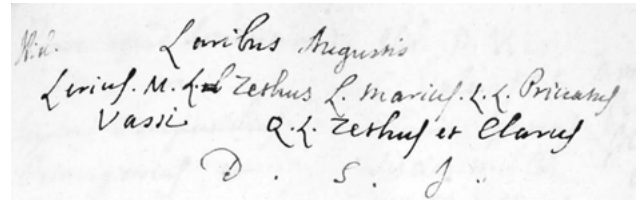 Laribus Augustis
Lerius. M. L. Zethus L. Marius. L. L. Priccatus
Vassi Q. L. Zethus et Clarus
D. S. J.